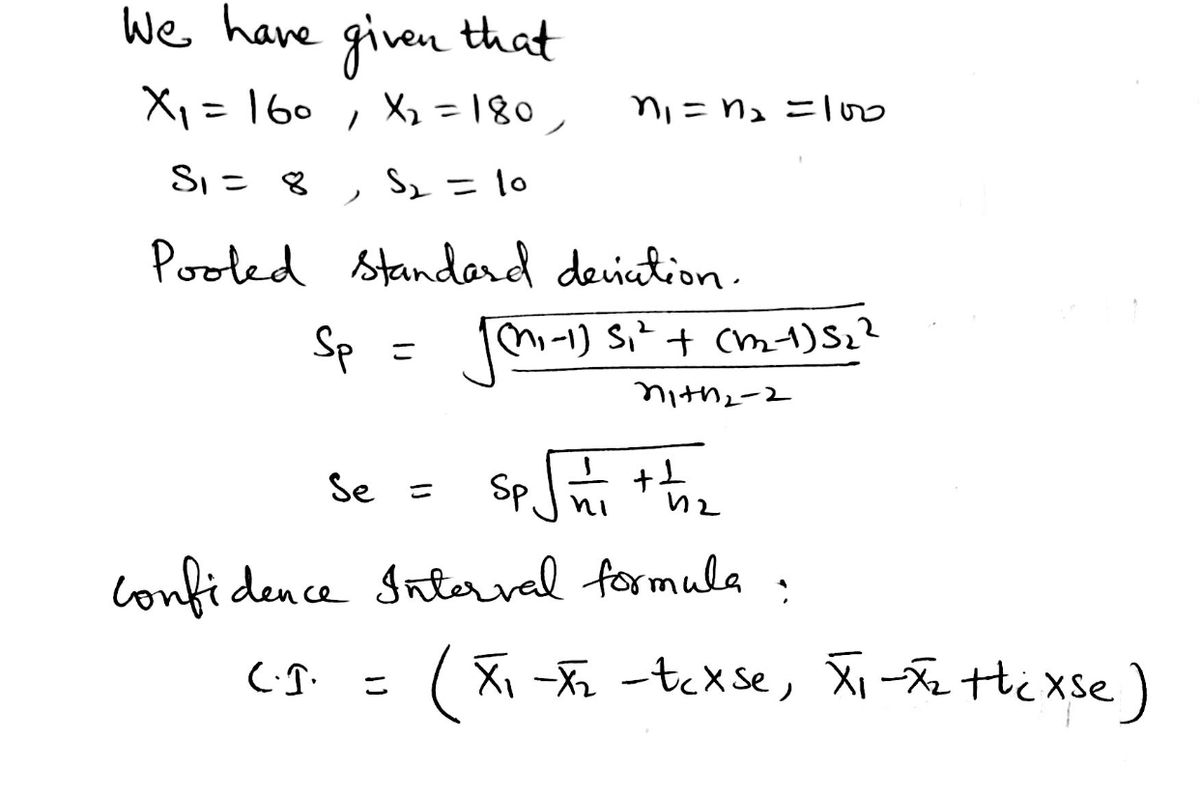 We have given that
X₁ = 160 , X₂ = 180, n₁ = n₂ = 100
S₁ = 8 , S₂ = 10
Pooled standard deviation.
Sp = √((n₁-1) S₁² + (n₂-1) S₂² / n₁+n₂-2)
Se = Sp √(1/n₁ + 1/n₂)
Confidence Interval formula :
C.I. = ( X̄₁ - X̄₂ - tc × se, X̄₁ - X̄₂ + tc × se )